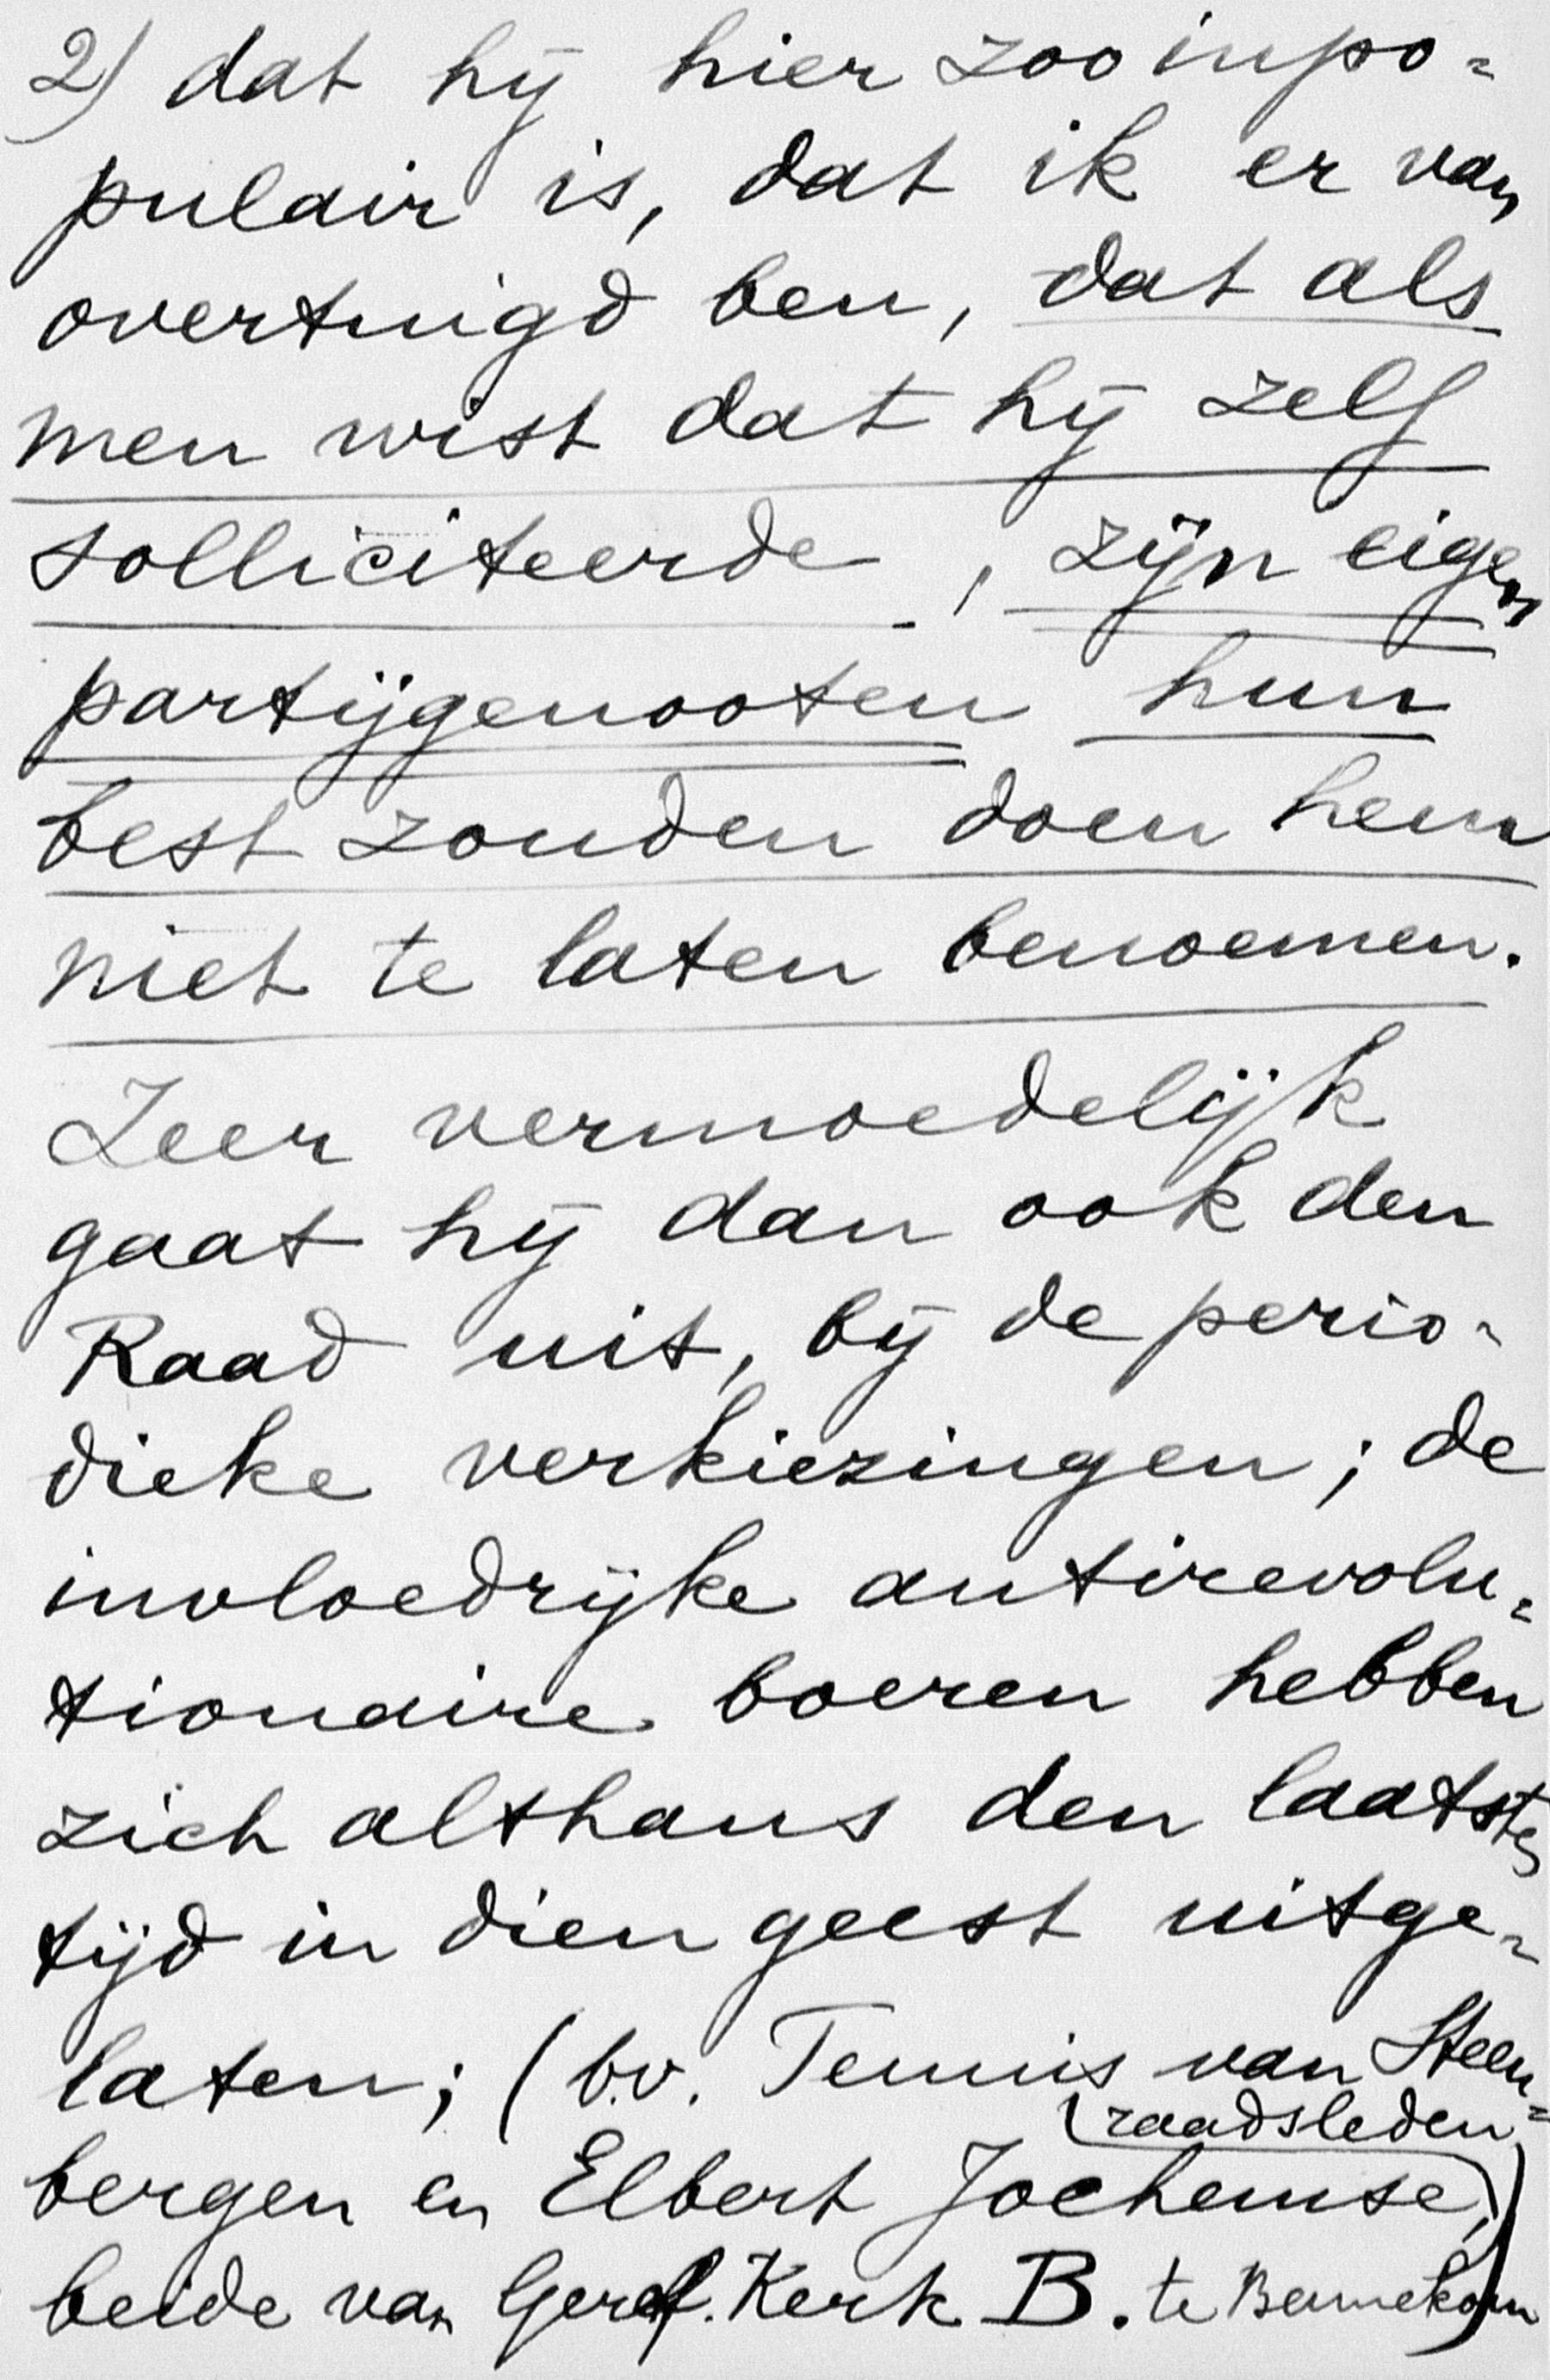 2) dat hij hier zoo inpo=
pulair is, dat ik er van
overtuigd ben, dat als
men wist dat hij zelf
solliciteerde, zijn eigen
partijgenooten hun
best zouden doen hem
niet te laten benoemen.
Zeer vermoedelijk
gaat hij dan ook den
Raad uit, bij de perio-
dieke verkiezingen; de
invloedrijke antirevolu=
tionaire boeren hebben
zich althans den laatsten
tijd in dien geest uitge-
laten; (b.v. Teunis van Steen=
(raadsleden)
bergen en Elbert Jochemse,
beide van Geref. Kerk B. te Bennekom)